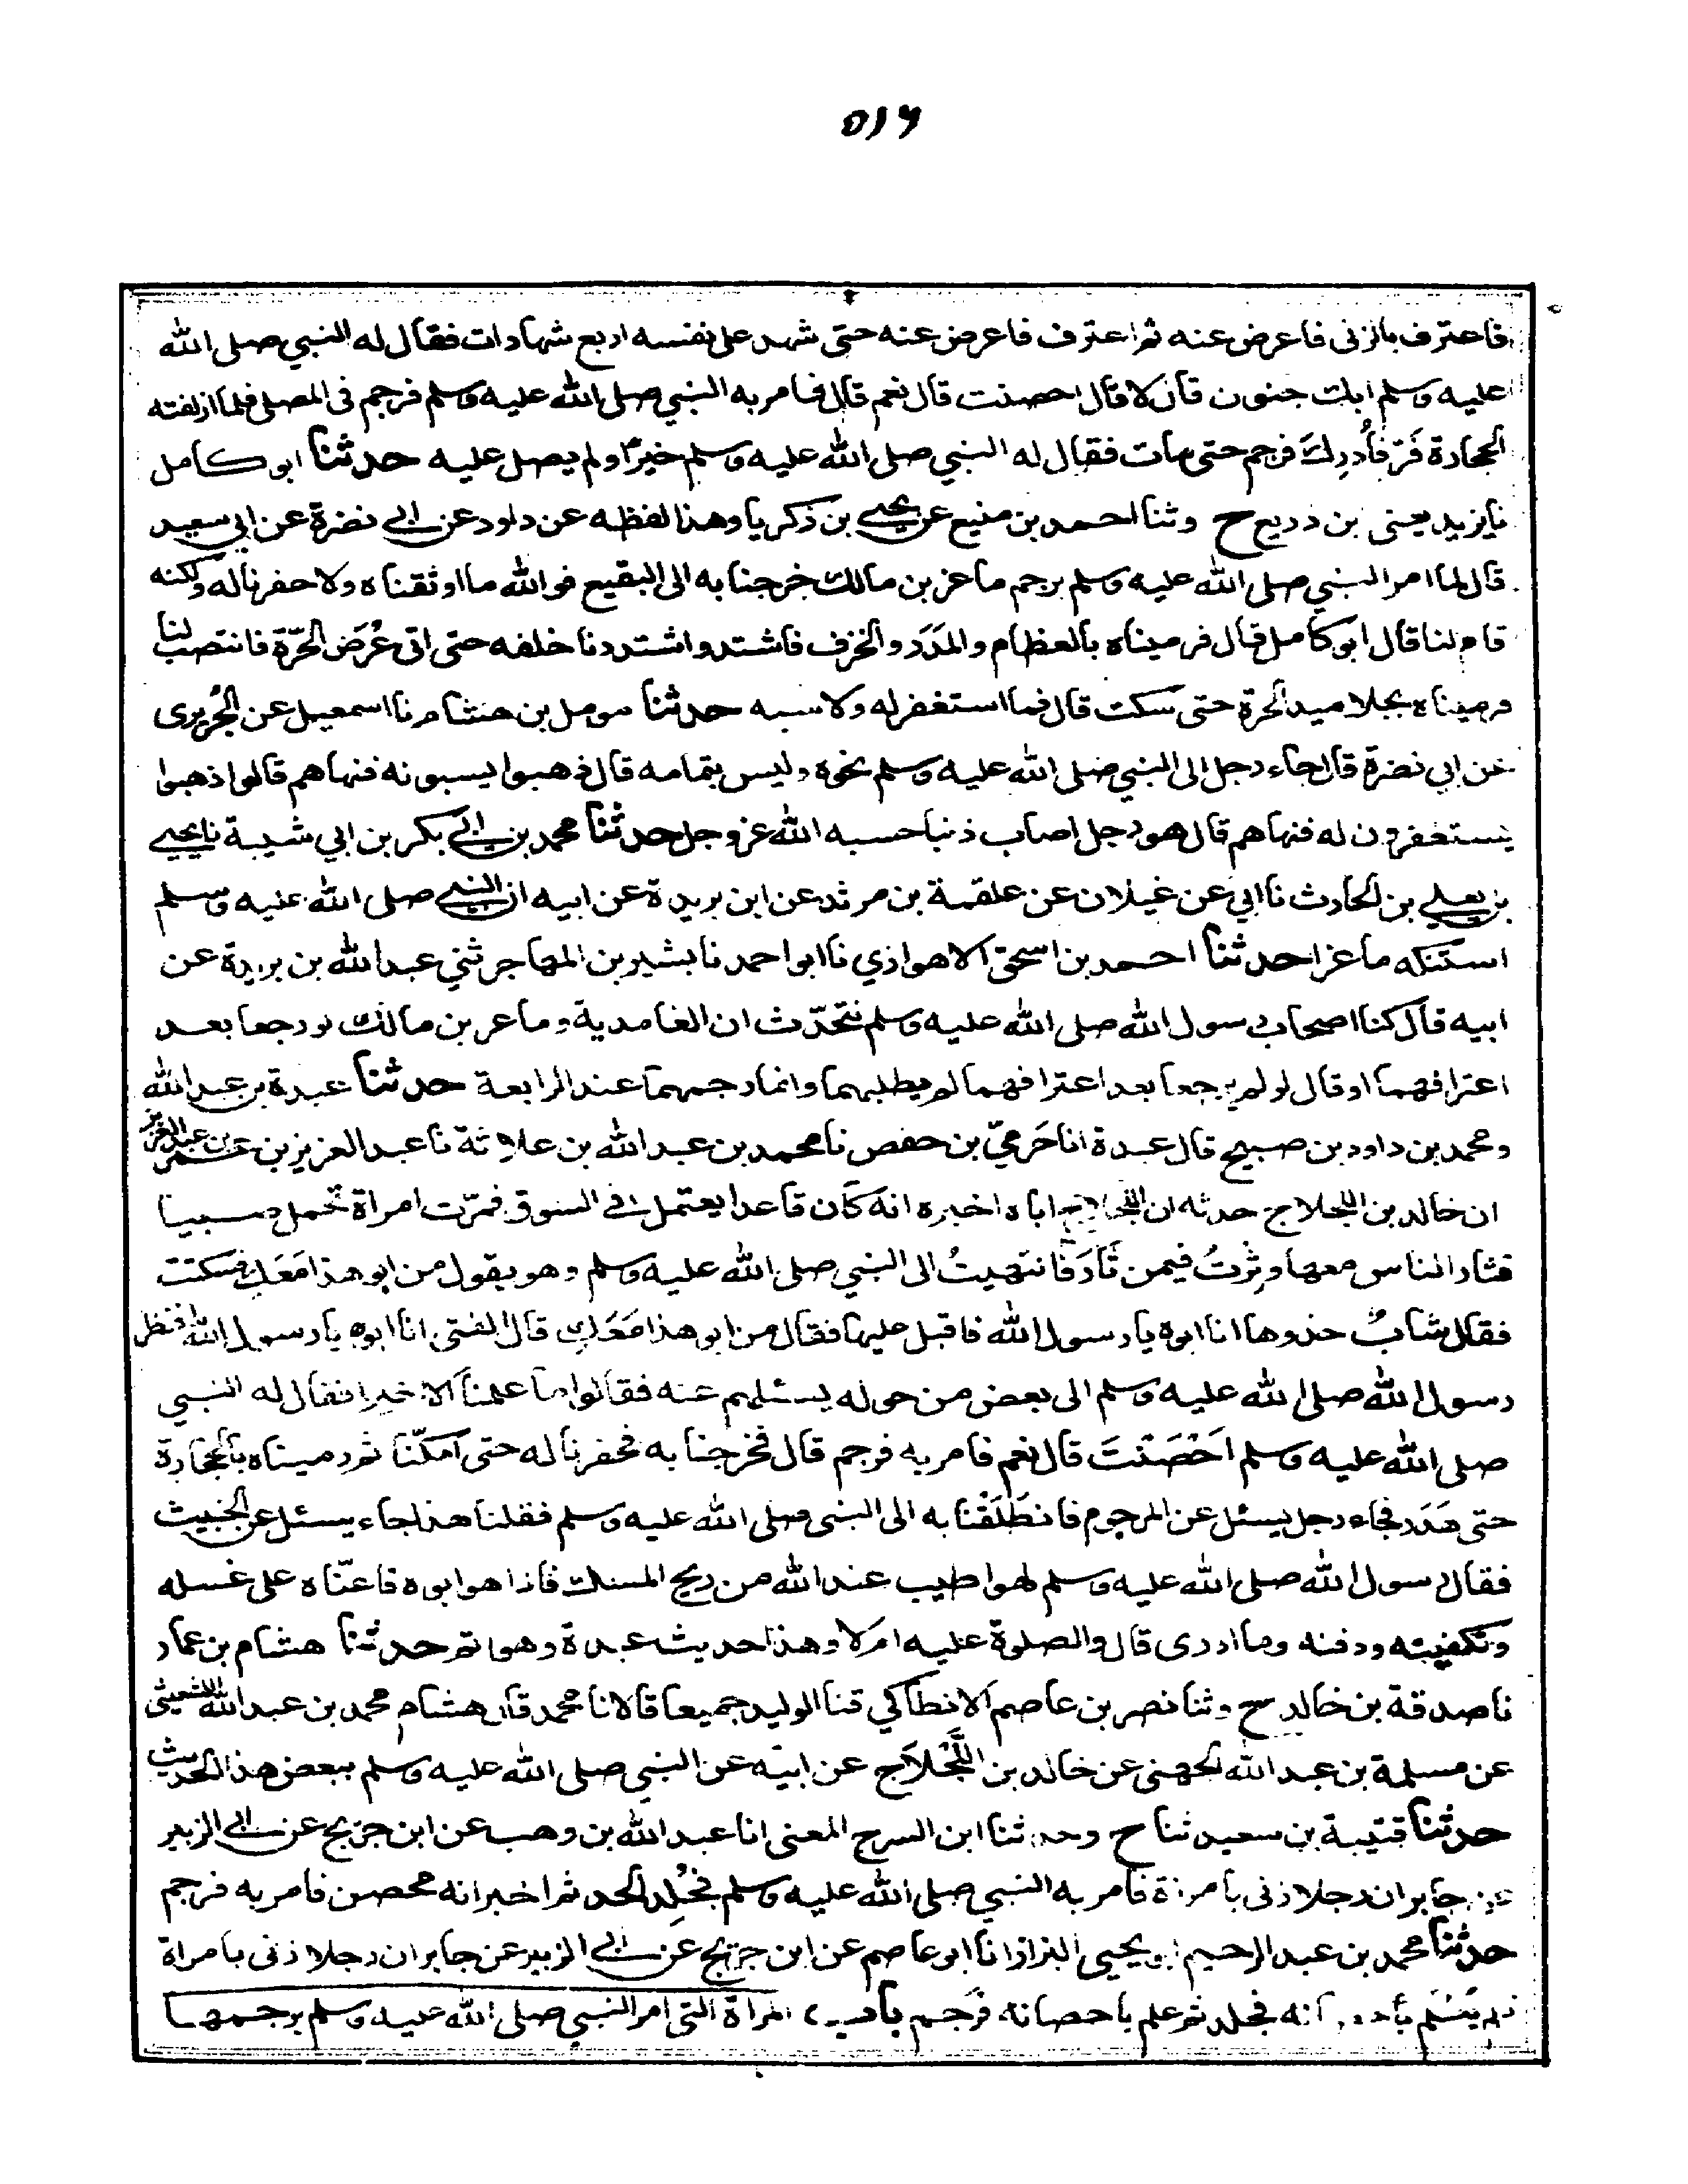 ٥١٦
فاعترف بالزنى فاعرض عنه ثم اعترف فاعرض عنه حتى شهد على نفسه اربع شهادات فقال له النبي صلى الله
عليه وسلم ابك جنون قال لا قال احصنت قال نعم قال فامر به النبي صلى الله عليه وسلم فرجم في المصلى فلما ازلفته
الحجارة فَرَّ فأُدرِكَ فرجم حتى مات فقال له النبي صلى الله عليه وسلم خيرًا ولم يصل عليه حدثنا ابو كامل
نا يزيد يعني بن زريع ح وثنا احمد بن منيع عن يحيى بن زكريا وهذا لفظه عن داود عن ابي نضرة عن ابي سعيد
قال لما امر النبي صلى الله عليه وسلم برجم ماعز بن مالك خرجنا به الى البقيع فوالله ما اوثقناه ولا حفرنا له ولكنه
قام لنا قال ابو كامل قال فرميناه بالعظام والمَدَر والخزف فاشتد واشتددنا خلفه حتى اتى عُرضَ الحَرّة فانتصب لنا
فرميناه بجلاميد الحرة حتى سكت قال فما استغفر له ولا سبه حدثنا مومل بن هشام نا اسمعيل عن الجُريرى
عن ابي نضرة قال جاء رجل الى النبي صلى الله عليه وسلم نحوه وليس بتمامه قال ذهبوا يسبونه فنهاهم قالوا ذهبوا
يستغفرون له فنهاهم قال هو رجل اصاب ذنبا حسبه الله عز وجل حدثنا محمد بن ابي بكر بن ابي شيبة نا يحيى
بن يعلى بن الحارث نا ابي عن غيلان عن علقمة بن مرثد عن ابن بريدة عن ابيه ان النبي صلى الله عليه وسلم
استنكه ماعزا حدثنا احمد بن اسحق الاهوازي نا ابو احمد نا بشير بن المهاجر ثني عبد الله بن بريدة عن
ابيه قال كنا اصحاب رسول الله صلى الله عليه وسلم نتحدّث ان الغامدية وماعز بن مالك لو رجعا بعد
اعترافهما او قال لو لم يرجعا بعد اعترافهما لم يطلبهما وانما رجمهما عند الرابعة حدثنا عبدة بن عبد الله
ومحمد بن داود بن صبيح قال عبدة انا حَرَميّ بن حفص نا محمد بن عبد الله بن علاثة نا عبد العزيز بن عمر بن عبد العزيز
ان خالد بن اللجلاج حدثه ان اللجلاج اباه اخبره انه كان قاعدا يعتمل في السوق فمرّت امراة تحمل صبيا
فثار الناس معها وثُرتُ فيمن ثَارَ فانتهيتُ الى النبي صلى الله عليه وسلم وهو يقول من ابو هذا مَعَكِ فسكتت
فقال شابٌ حذوها انا ابوه يا رسول الله فاقبل عليها فقال من ابو هذا مَعَكِ قال الفتى انا ابوه يا رسول الله فنظر
رسول الله صلى الله عليه وسلم الى بعض من حوله يسئلهم عنه فقالوا ما علمنا الا خيرا فقال له النبي
صلى الله عليه وسلم اَحْصَنْتَ قال نعم فامر به فرجم قال فخرجنا به فحفرنا له حتى امكنّا ثم رميناه بالحجارة
حتى هَدَر فجاء رجل يسئل عن المرجوم فانطَلَقْنا به الى النبي صلى الله عليه وسلم فقلنا هذا جاء يسئل عن الخبيث
فقال رسول الله صلى الله عليه وسلم لهو اطيب عند الله من ريح المسك فاذا هو ابوه فاعنّاه على غسله
وتكفينه ودفنه وما ادرى قال والصلوة عليه ام لا وهذا حديث عبدة وهو اتم حدثنا هشام بن عمار
نا صدقة بن خالد ح وثنا نصر بن عاصم الانطاكي ثنا الوليد جميعا قالا نا محمد قال هشام محمد بن عبد الله الشعيثي
عن مسلمة بن عبد الله الجهنى عن خالد بن اللَّجْلاَج عن ابيه عن النبي صلى الله عليه وسلم ببعض هذا الحديث
حدثنا قتيبة بن سعيد ثنا ح وحدثنا ابن السرح المعنى انا عبد الله بن وهب عن ابن جريج عن ابي الزبير
عن جابر ان رجلا زنى بامراة فامر به النبي صلى الله عليه وسلم فجُلِد الحد ثم اخبر انه محصن فامر به فرجم
حدثنا محمد بن عبد الرحيم ابو يحيى البزاز انا ابو عاصم عن ابن جريج عن ابي الزبير عن جابر ان رجلا زنى بامراة
فلم يَعْلَم باحصانه فجلد ثم علم باحصانه فرُجم باب في المراة التي امر النبي صلى الله عليه وسلم برجمها